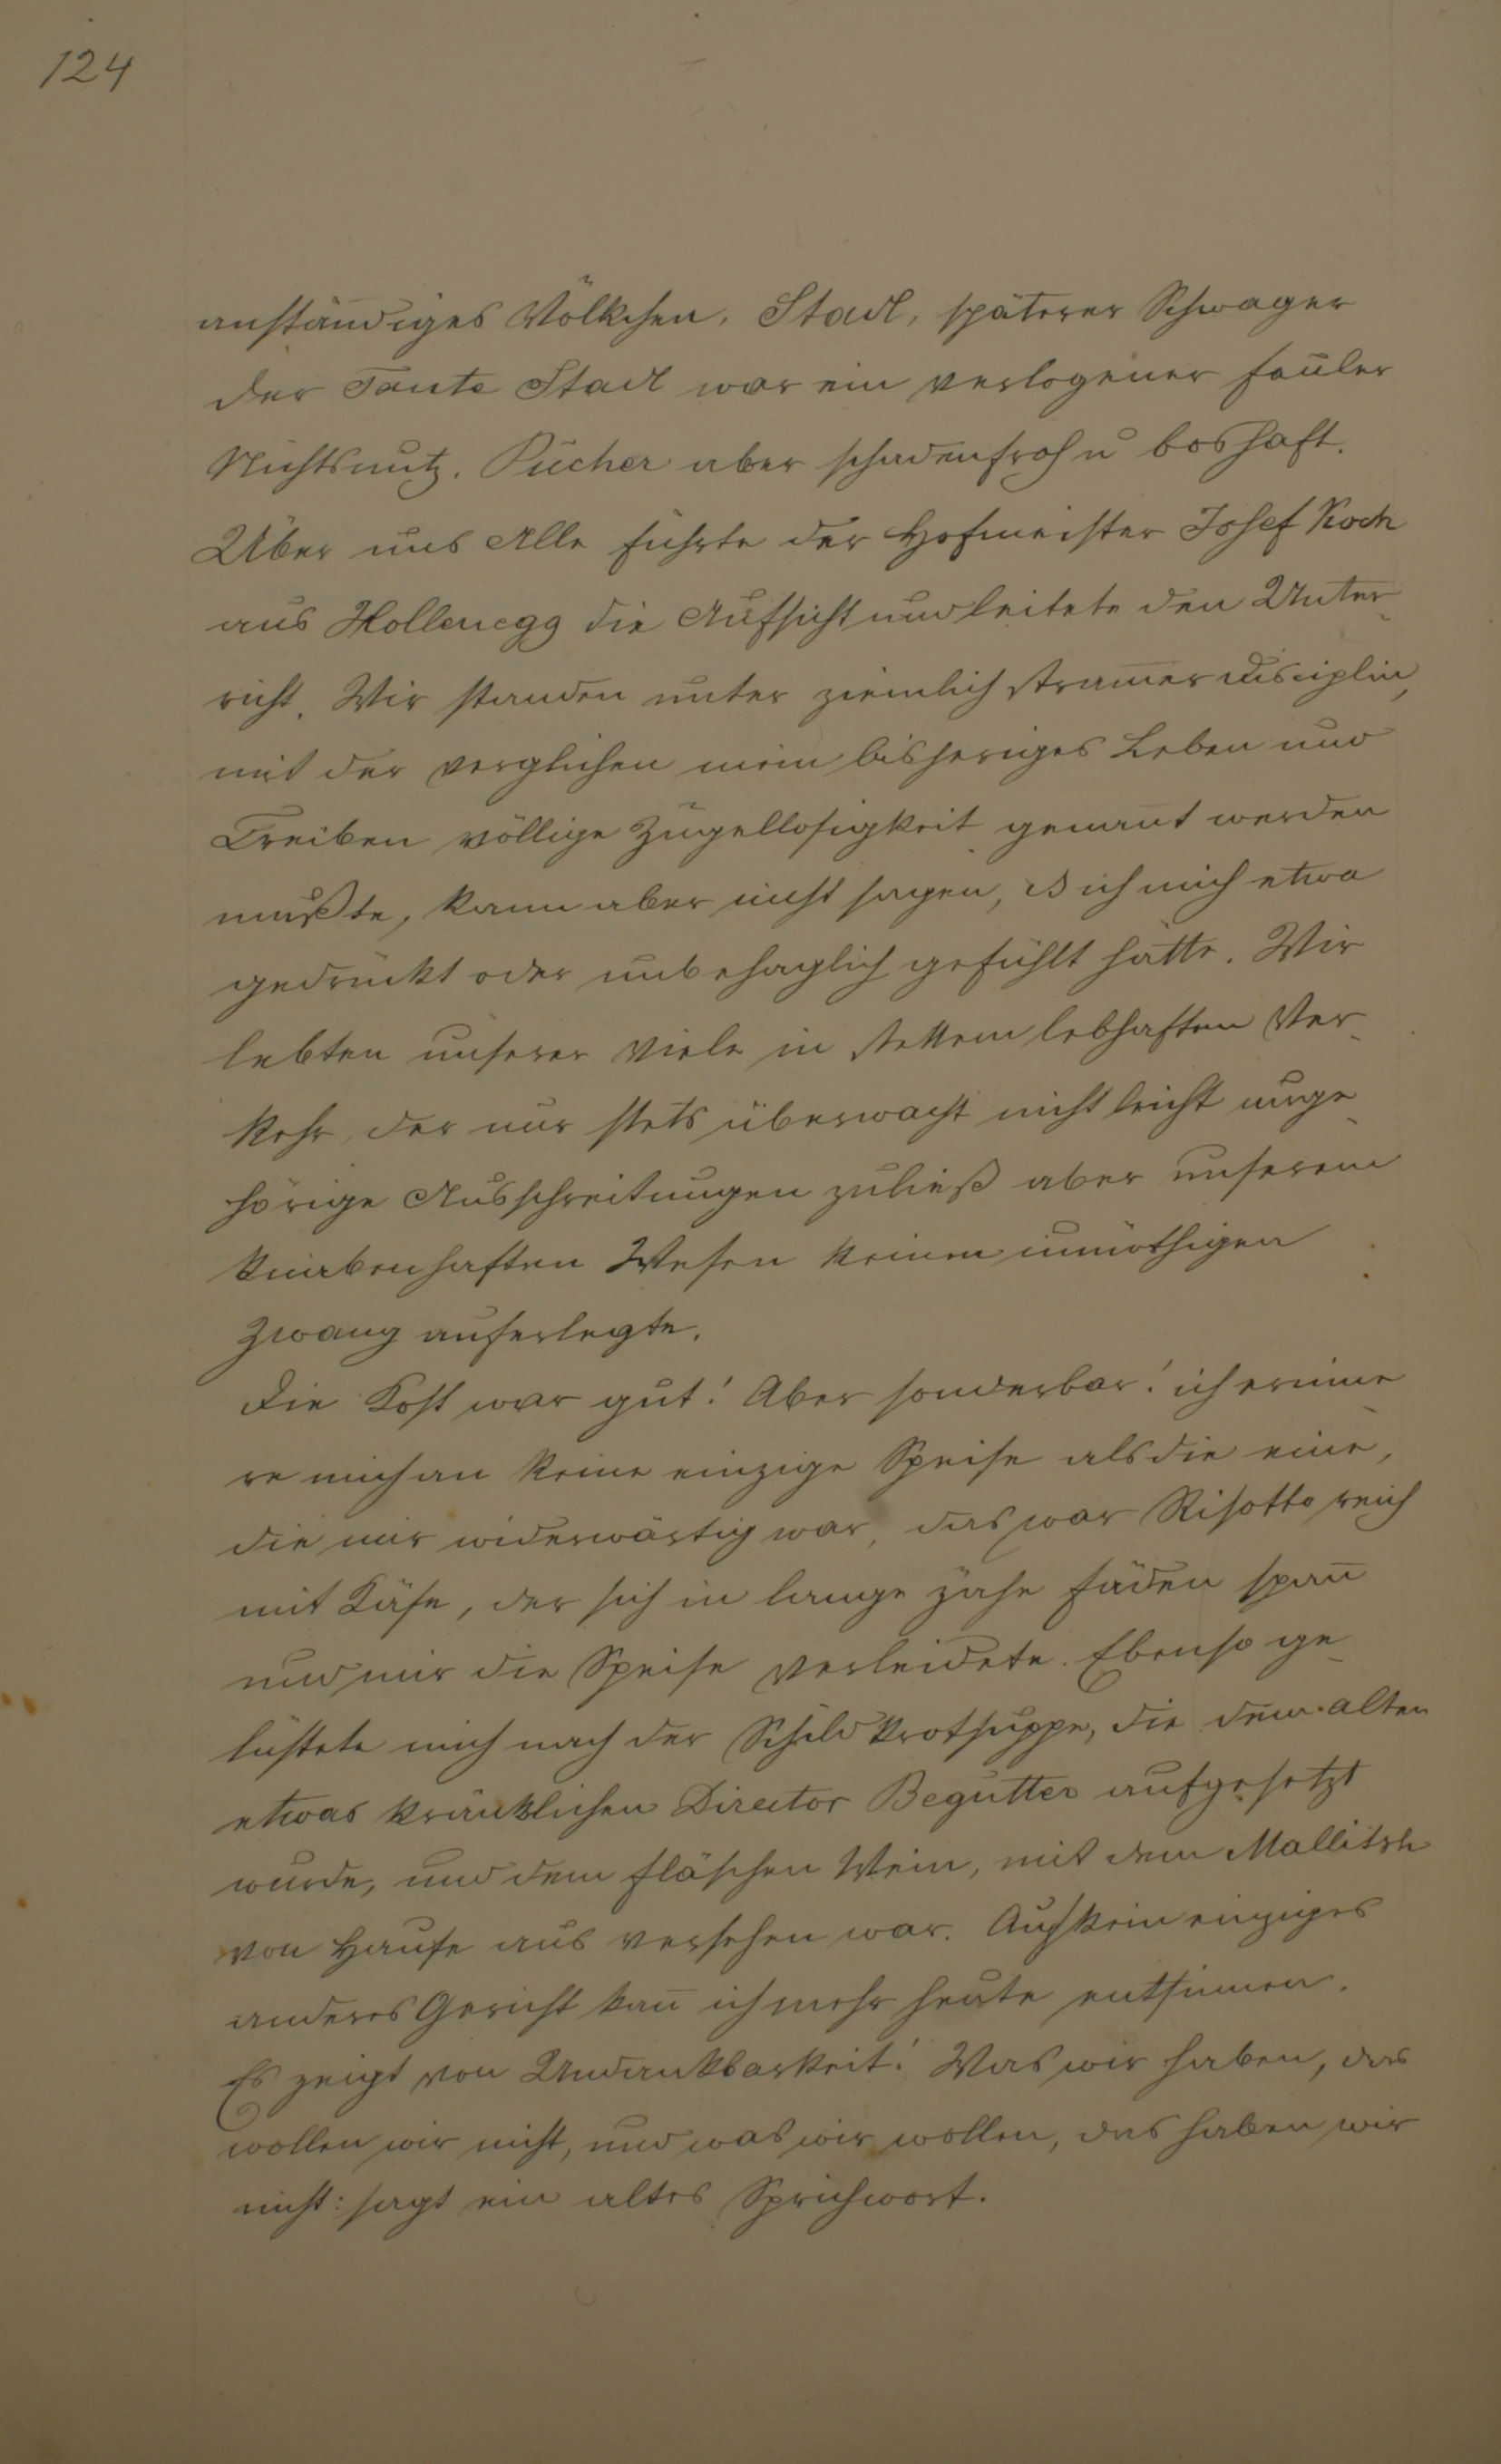 124
anständiges Völkchen. Stadl, späterer Schwager
der Tante Stadl war ein verlogener fauler
Nichtsnutz. Pucher aber schadenfroh u boshaft.
Über uns Alle führte der Hofmeister Josef Koch
aus Hollenegg die Aufsicht und leitete den Unter-
richt. Wir standen unter ziemlich stram̅er Disciplin,
mit der verglichen mein bisheriges Leben und
Treiben völlige Zügellosigkeit genan̅t werden
mußte, kann aber nicht sagen, ds ich mich etwa
gedrückt oder unbehaglich gefühlt hätte. Wir
lebten unserer viele in stettem lebhaften Ver-
kehr, der nur stets überwacht nicht leicht unge-
hörige Ausschreitungen zuließ aber unserem
knabenhaften Wesen keinen unnöthigen
Zwang auferlegte.
Die Kost war gut! Aber sonderbar! ich erinne-
re mich an keine einzige Speise als die eine,
die mir widerwärtig war, das war Risotto reich
mit Käse, der sich in lange zähe Fäden span̅
und mir die Speise verleidete. Ebenso ge-
lüstete mich nach der Schildkrotsuppe, die dem alten
etwas kränklichen Director Begutter aufgesetzt
wurde, und dem Fläschen Wein, mit dem Mallitsh
von Hause aus versehen war. Auf kein einziges
anderes Gericht kan̅ ich mehr heute entsinnen.
Es zeigt von Undankbarkeit! Was wir haben, das
wollen wir nicht, und was wir wollen, das haben wir
nicht: sagt ein altes Sprichwort.